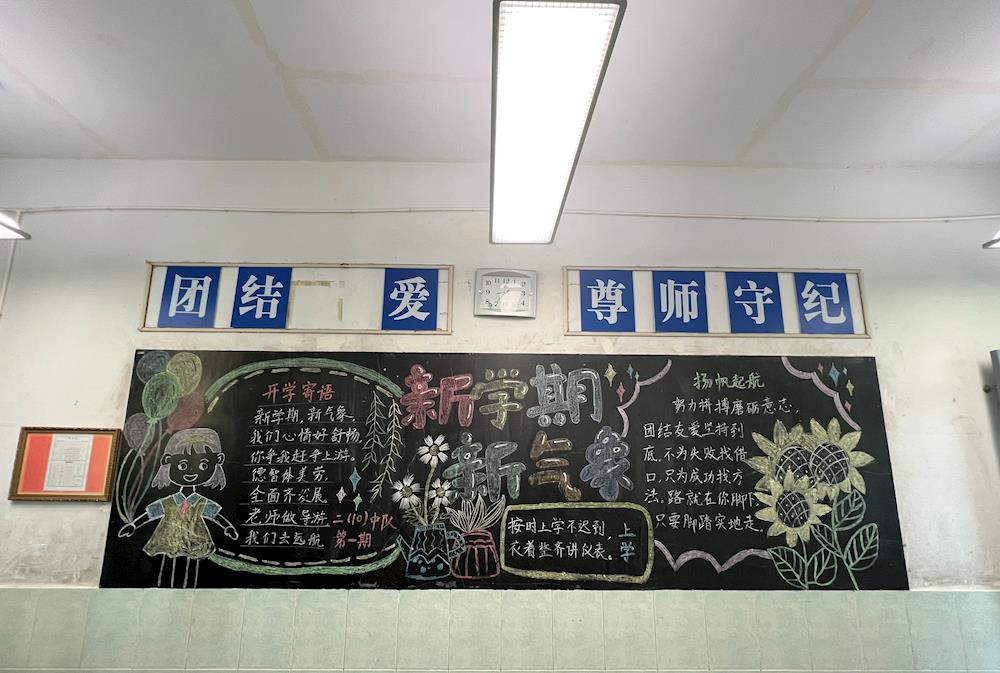 团结 爱
尊师守纪
开学寄语
新学期,新气象。
我们心情好舒畅。
你争我赶争上游。
德智体美劳,
全面齐发展。
老师做导游
我们去远航
二(10)中队
第一期
新学期
新气象
按时上学不迟到,
衣着整齐讲仪表。
上学
扬帆起航
努力拼搏磨砺意志,
团结友爱坚持到
底,不为失败找借
口,只为成功找方
法,路就在你脚下
只要脚踏实地走